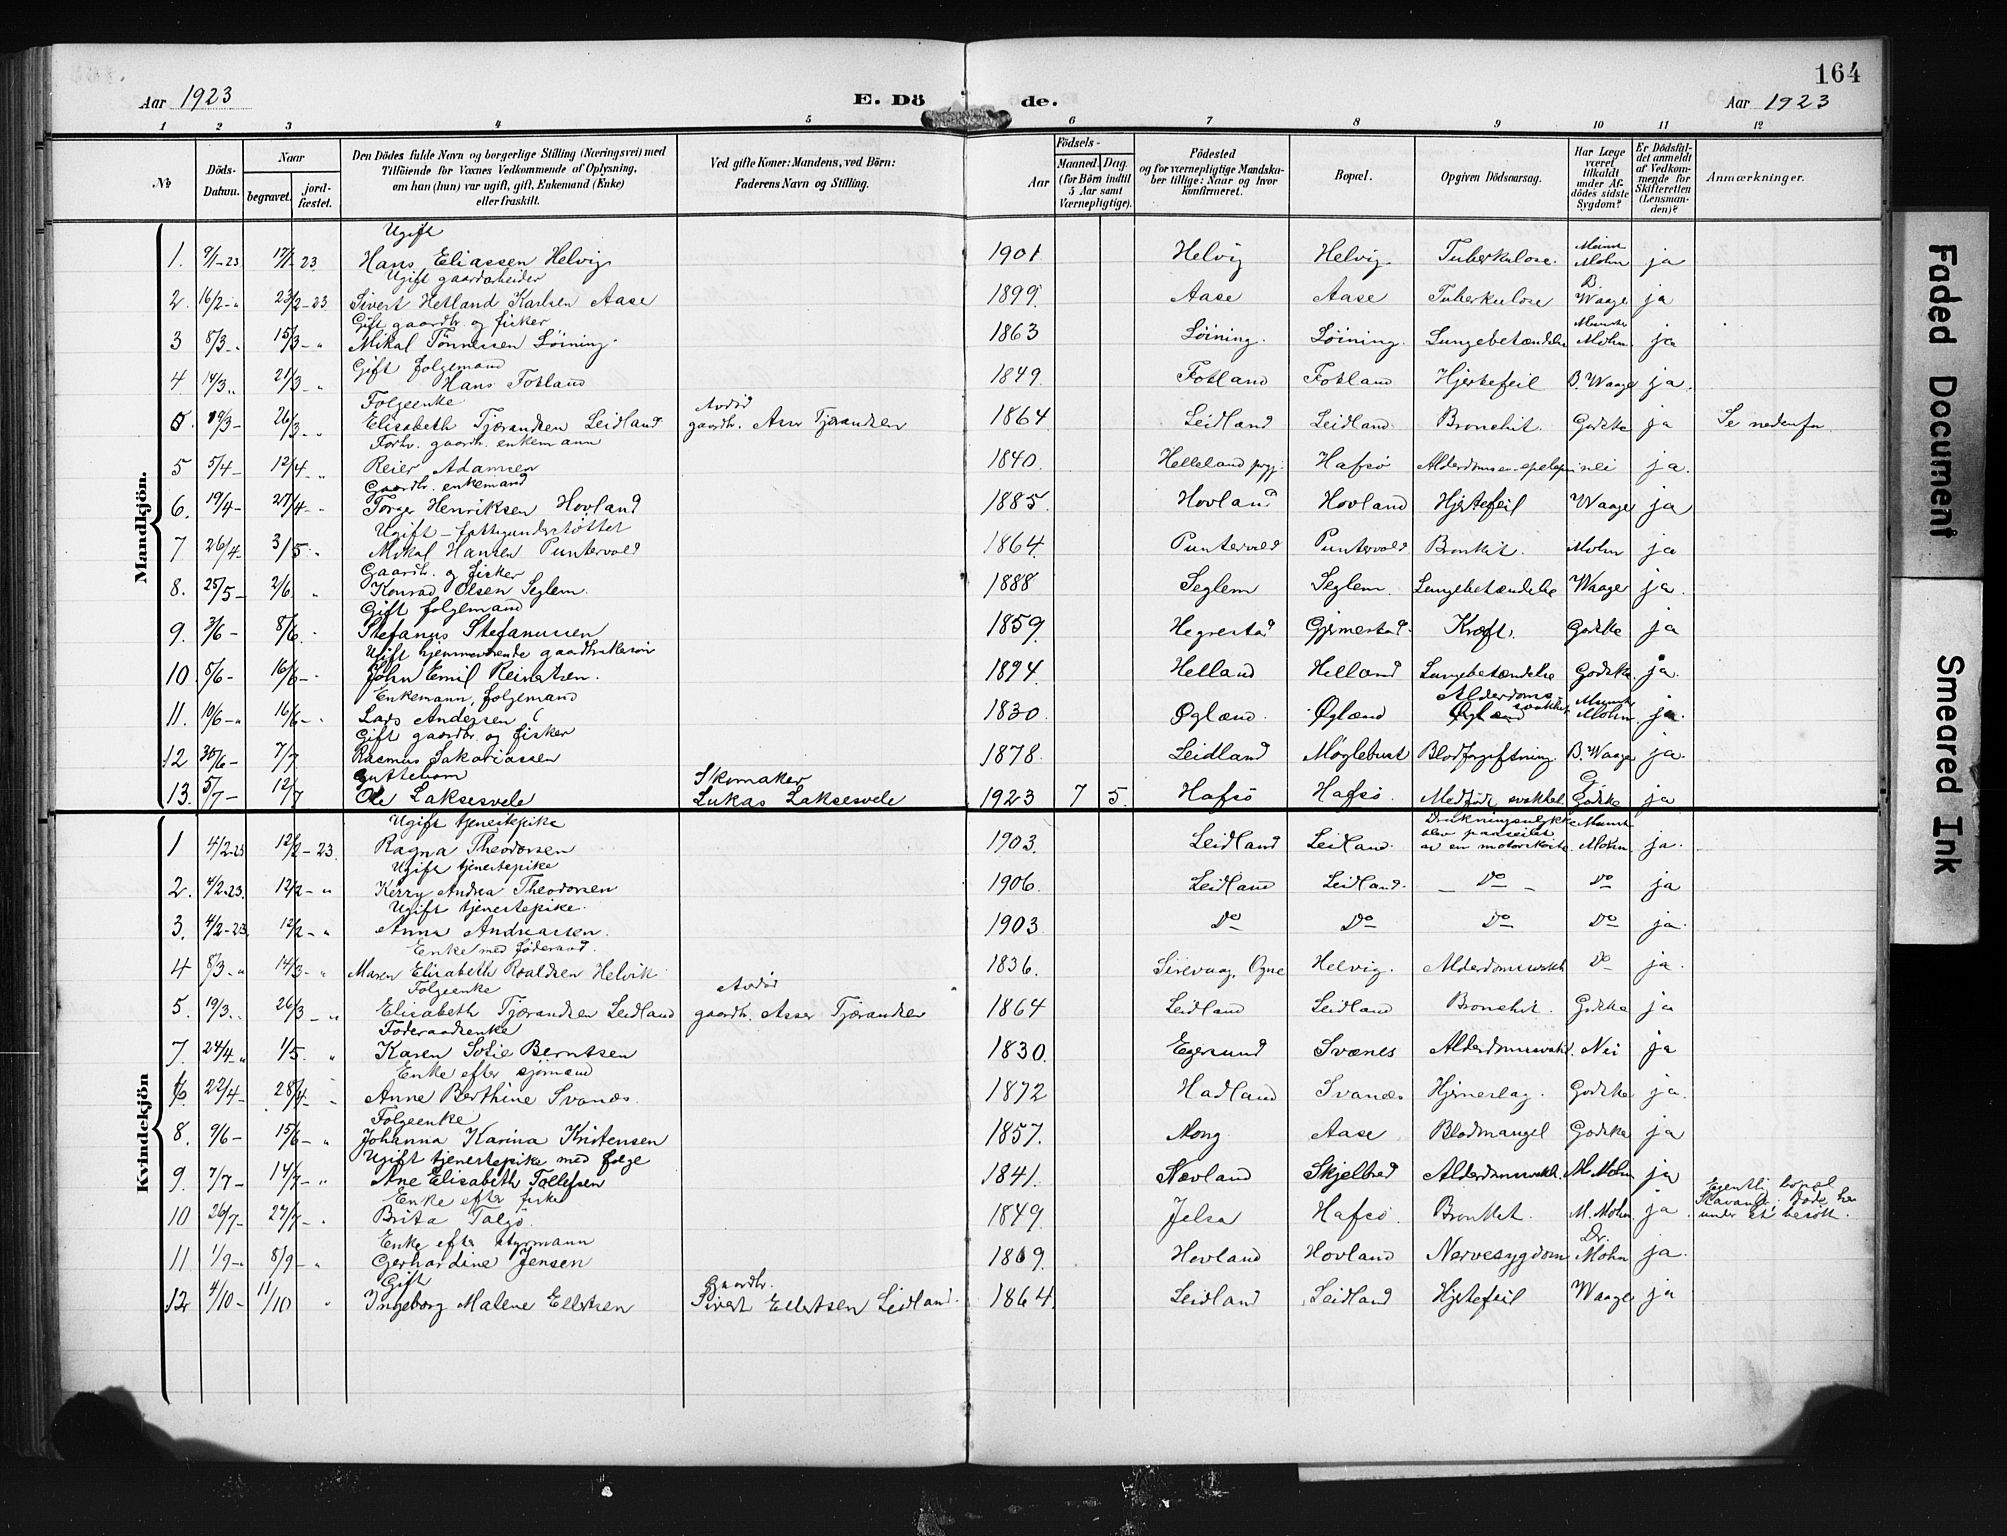 164
Aar 1923
E. Dö
de.
Aar 1923
1 2 3 4 5 6 7 8 9 10 11 12
No
Döds-Datum.
Naar
begravet.
jord-fæstet.
Den Dödes fulde Navn og borgerlige Stilling (Næringsvei) med
Tilföiende for Voxnes Vedkommende af Oplysning,
om han (hun) var ugift, gift, Enkemand (Enke)
eller fraskilt.
Ved gifte Koner: Mandens, ved Börn:
Faderens Navn og Stilling.
Födsels-
Aar
Maaned. Dag.
(for Börn indtil
5 Aar samt
Værnepligtige).
Födested
og for værnepligtige Mandska-
ber tillige: Naar og hvor
konfirmeret.
Bopæl.
Opgiven Dödsaarsag.
Har Læge
været
tilkaldt
under Af-
dödes sidste
Sygdom?
Er Dödsfal-
det anmeldt
af Vedkom-
mende for
Skifteretten
(Lensman-
den)?
Anmærkninger.
Mandkjön.
Ugift
1. 9/1-23 17/1-23 Hans Eliassen Helvig 1901 Helvig Helvig. Tuberkulose. Mohn ja
Ugift gaardarbeider
2. 16/2-" 23/2-23 Sivert Hetland Karlsen Aase 1899. Aase Aase Tuberkulose D. Waage ja
Gift gaardbr. og fisker
3 8/3-" 15/3-" Mikal Tönnessen Söining. 1863 Söining. Söining. Lungebetændelse Mohn ja
Gift folgemand
4 14/3" 21/3-" Hans Fotland 1849. Fotland Fotland Hjertefeil D. Waage ja.
Folgeenke Avdöd
19/3- 26/3-" Elisabeth Tjærandsen Leidland gaardbr. Asser Tjærandsen 1864 Leidland Leidland Bronchit. Godske ja Se nedenfor
Forhv. gaardb. enkemann
5 5/4- 12/4-" Reier Adamsen 1840. Helleland prgj. Hafsö nei ja.
Gaardbr. enkemand
6. 19/4- 27/4-" Torger Henriksen Hovland 1885. Hovland Hovland Hjertefeil Waage ja
Ugift - fattigunderstöttet
7 26/4- 3/5 " Mikal Hansen Puntervold 1864. Puntervold Puntervold Bronkit. Mohn ja
Gaardb. og fisker
8. 25/5- 2/6 " Konrad Olsen Seglem. 1888 Seglem Seglem. Lungebetændelse Waage ja.
Gift folgemand
9. 3/6- 8/6. Stefanus Stefanussen 1859. Hegrestad Gjermestad. Kræft. Godske ja
Ugift hjemmeværende gaardbrukersön
10. 8/6- 16/6-. John Emil Reinertsen. 1894. Helland Helland Lungebetændelse Godske ja.
Enkemann, folgemand Alderdoms svakhet
11. 10/6-" 16/6-" Lars Andersen 1830. Ögland. Ögland Mohn. ja.
Gift gaardbr. og fisker
12 30/6- 7/7 Rasmus Sakariassen 1878. Leidland Möglebust Blodforgiftning. D. Waage ja.
Guttebarn Skomaker
13. 5/7- 12/7 Ole Laksesvele Lukas Laksesvele 1923 7 5. Hafsö Hafsö. Medfödt svakhet Godske ja
Kvindekjön
Ugift tjenestepike Drukningsulykke
1 4/2-23 12/2-23. Ragna Theodorsen 1903. Leidland Leidland. blev paaseilet av en motorskøite. Mohn. ja.
Ugift tjenestepike
2. 4/2-23. 12/2-" Kerry Andrea Theodorsen 1906. Leidland Leidland. - Do - Do ja
Ugift tjenestepike.
3. 4/2-23. 12/2-" Anna Andreassen. 1903 Do Do Do Do ja.
Enke med föderaad.
4 8/3-" 14/3-" Maren Elisabeth Roaldsen Helvik 1836. Sirevaag, Ogne Helvig. Alderdomssvakh. Do ja.
Folgeenke Avdöd
5. 19/3." 26/3-" Elisabeth Tjærandsen Leidland gaardb. Asser Tjærandsen 1864 Leidland Leidland Bronchit. Godske ja
Föderaadsenke
7. 24/4-" 1/5. " Karen Sofie Berntsen 1830. Egersund Svanes Alderdomssvakh. Nei ja
Enke efter sjömand
6. 22/4- 28/4- Anne Berthine Svanes. 1872 Hadland Svanes Hjerneslag. Godske ja.
Folgeenke
8. 9/6- 15/6-" Johanna Karina Kristensen 1857. Mong. Aase Blodmangel Godske ja
Ugift tjenestepike med folge
9. 7/7- 14/7-" Ane Elisabeth Tollefsen 1841. Nevland Skjelbred Alderdomssvakh. M. Mohn ja
Enke efter fisker Egentli bopæl
10 26/7- 27/7-. Brita Talgö. 1849. Jelsa Hafsö. Bronkit. M. Mohn. ja. Stavanger. Döde her under et besök.
Enke efter styrmann
11 1/9-" 8/9-" Gerhardine Jensen 1869. Hovland Hovland Nervesygdom Dr. Mohn ja.
Gift Gaardbr.
12 4/10- 11/10 " Ingeborg Malene Ellertsen Sivert Ellertsen Leidland. 1864. Leidland Leidland Hjertefeil Waage ja
Faded Document
Smeared Ink